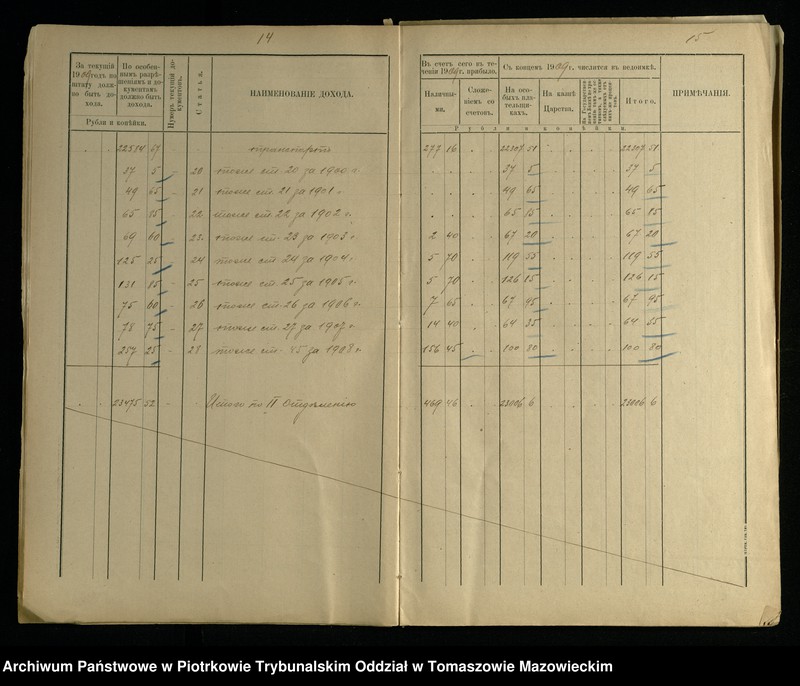 14
15
За текущій 1909 годъ по штату должно быть дохода.
По особеннымъ разрѣшеніямъ и документамъ должно быть дохода.
Нумеръ текущій документовъ.
Статья.
НАИМЕНОВАНІЕ ДОХОДА.
Рубли и копѣйки.
Въ счетъ сего въ теченіи 1909 г. прибыло.
Съ концемъ 1909 г. числится въ недоимкѣ.
ПРИМѢЧАНІЯ.
Наличными.
Сложеніемъ со счетовъ.
На особыхъ плательщикахъ.
На казнѣ Царства.
Итого.
Рубли и копѣйки.
22584 57 транспортъ 277 16 22307 51 22307 51
37 5 20 тоже ст. 20 за 1900 г. 37 5 37 5
49 65 21 тоже ст. 21 за 1901 г. 49 65 49 65
65 15 22 тоже ст. 22 за 1902 г. 65 15 65 15
69 60 23 тоже ст. 23 за 1903 г. 2 40 67 20 67 20
125 25 24 тоже ст. 24 за 1904 г. 5 70 119 55 119 55
131 85 25 тоже ст. 25 за 1905 г. 5 70 126 15 126 15
75 60 26 тоже ст. 26 за 1906 г. 7 65 67 95 67 95
78 75 27 тоже ст. 27 за 1907 г. 14 40 64 35 64
257 25 28 тоже ст. 45 за 1908 г. 156 45 100 80 100 80
23475 52 Итого по II Отдѣленію 469 46 23006 6 23006 6
Archiwum Państwowe w Piotrkowie Trybunalskim Oddział w Tomaszowie Mazowieckim